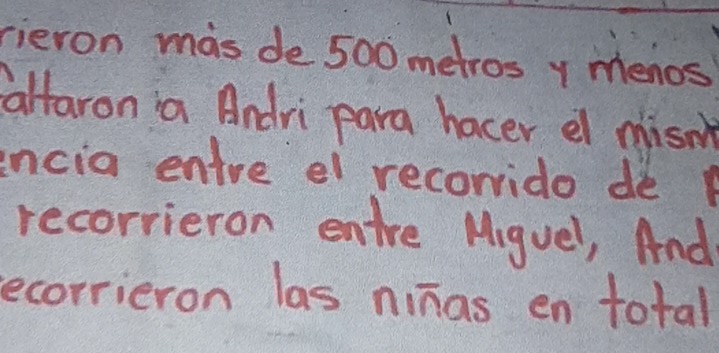 rieron más de 500 metros y menos
altaron a Andri para hacer el mism
encia entre el recorrido de
recorrieron entre Miguel, And
ecorrieron las niñas en total